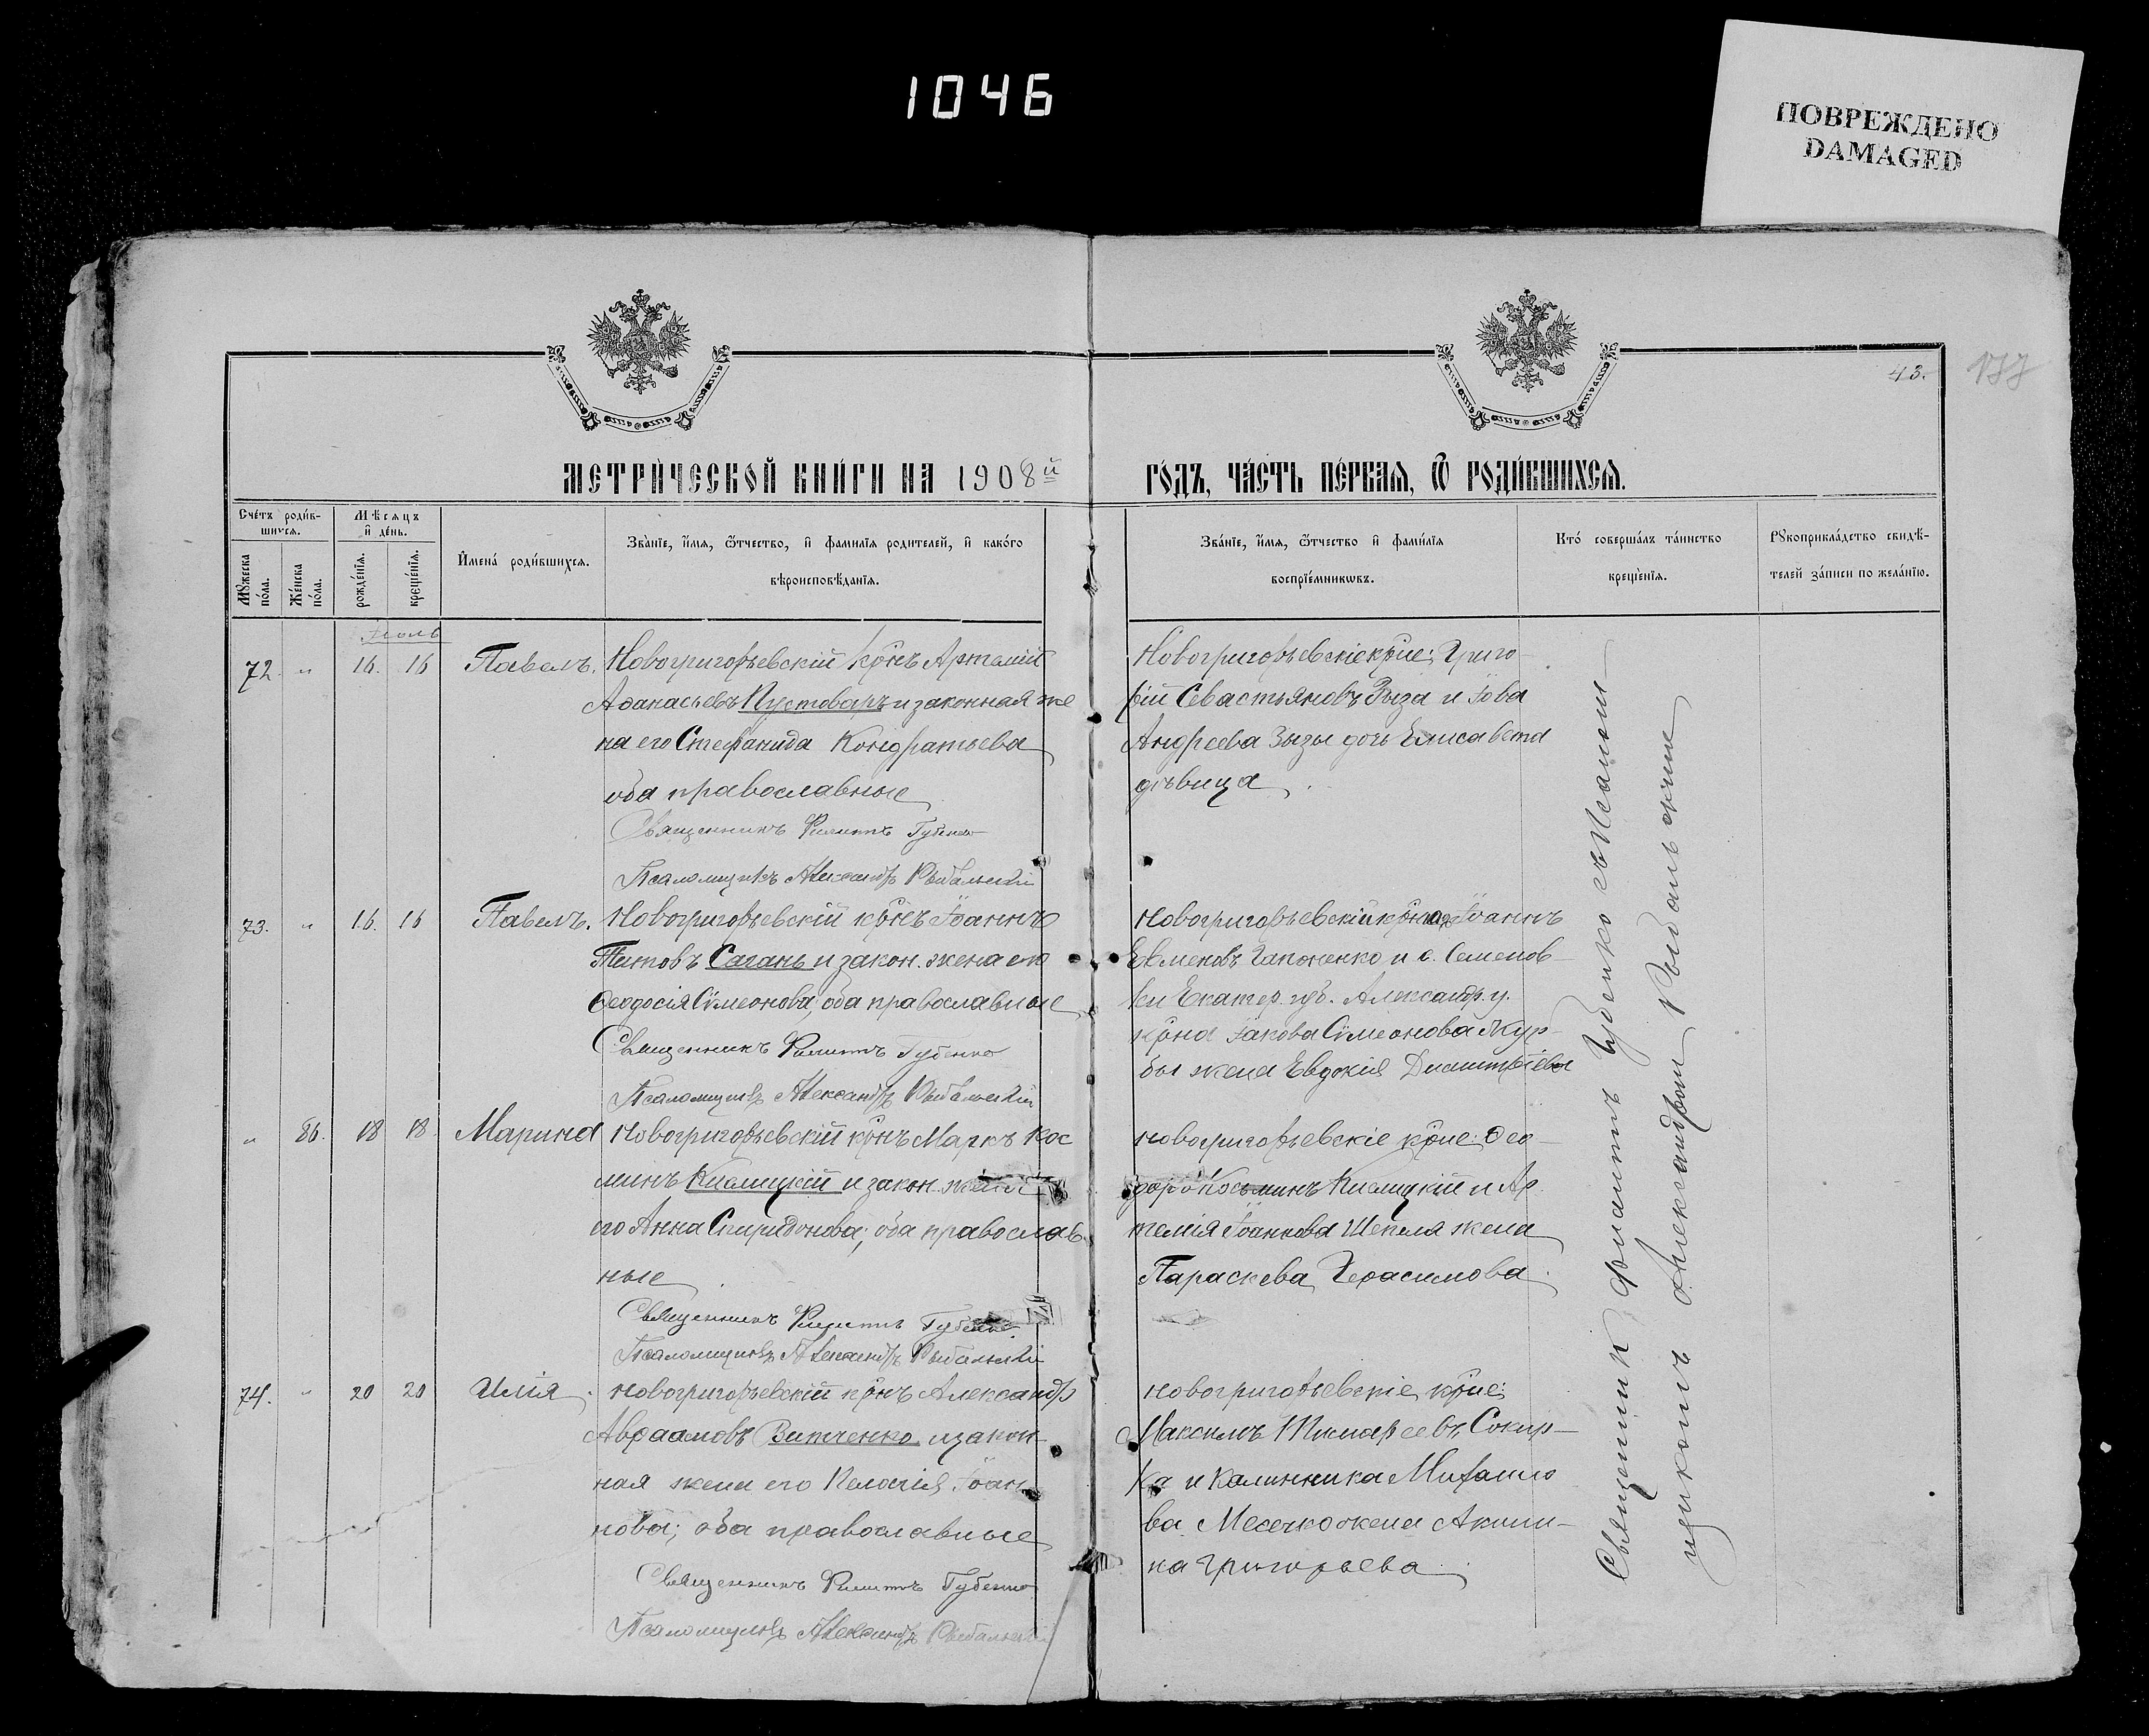 1046
ПОВРЕЖДЕНО
DAMAGED
43.
177
МЕТРИ́ЧЕСКОЙ КНИ́ГИ НА 1908й
ГО́ДЪ, ЧА́СТЬ ПЕ́РВАЯ, Ѿ РОДИ́ВШИХСЯ.
Сче́тъ роди́в-
шихся.
Мꙋ́жеска
по́ла.
Же́нска
по́ла.
Мѣ́сяцъ
и҆ де́нь.
рожде́нїя.
креще́нїя.
И҆мена̀ роди́вшихся.
Зва́нїе, и҆́мя, ѻ҆́тчество, и҆ фами́лїя роди́телей, и҆ како́го
вѣроисповѣ́данїя.
Зва́нїе, и҆́мя, ѻ҆́тчество и҆ фами́лїя
воспрїе́мникѡвъ.
Кто́ соверша́лъ та́инство
креще́нїя.
Рꙋкоприкла́дство свидѣ́-
телей за́писи по жела́нїю.
Іюль
72. " 16. 16 Павелъ. Новогригорьевскій крнъ Артемій
Аѳанасьевъ Пустоваръ и законная же
на его Стефанида Кондратьева
оба православные
Священникъ Филиппъ Губенко
Псаломщикъ Александръ Рыбальскій
Новогригорьевскіе кр̃не: Григо-
рій Севастьяновъ Зыза и Іова
Андреева Зызы дочь Елисавета
дѣвица.
73. " 16. 16 Павелъ. Новогригорьевскій крнъ Іоаннъ
Титовъ Сагань и закон. жена его
Ѳеодосія Сѵмеонова, оба православные
Священникъ Филиппъ Губенко
Псаломщикъ Александръ Рыбальскій
Новогригорьевскій Іоаннъ
Евменовъ Гапоненко и с. Семенов-
ки Екатер. губ. Александр. у.
крна Іакова Сѵмеонова Жур-
бы жена Евдокія Димитріева
" 86. 18 18 Марина Новогригорьевскій крнъ Маркъ Кос
минъ Кислицкій и закон. жена
его Анна Спиридонова; оба православ-
ные
Священникъ Филиппъ Губенко
Псаломщикъ Александръ Рыбальскій
Новогригорьевскіе крне: Ѳео-
доръ Косьминъ Кислицкій и Ар
темія Іоаннова Шепеля жена
Параскева Герасимова.
74. " 20 20 Илія. Новогригорьевскій крнъ Александр
Авраамовъ Витченко и закон-
ная жена его Пелагія Іоан-
нова; оба православные
Священникъ Филиппъ Губенко
Псаломщикъ Александръ Рыбальскій
Новогригорьевскіе крне:
Максимъ Тимофеевъ Сокир-
ка и Калинника Михаило
ва Месечко жена Акили-
на Григорьева.
Священник Филиппъ Губенко съ Псалом-
щикомъ Александром Рыбальскимъ